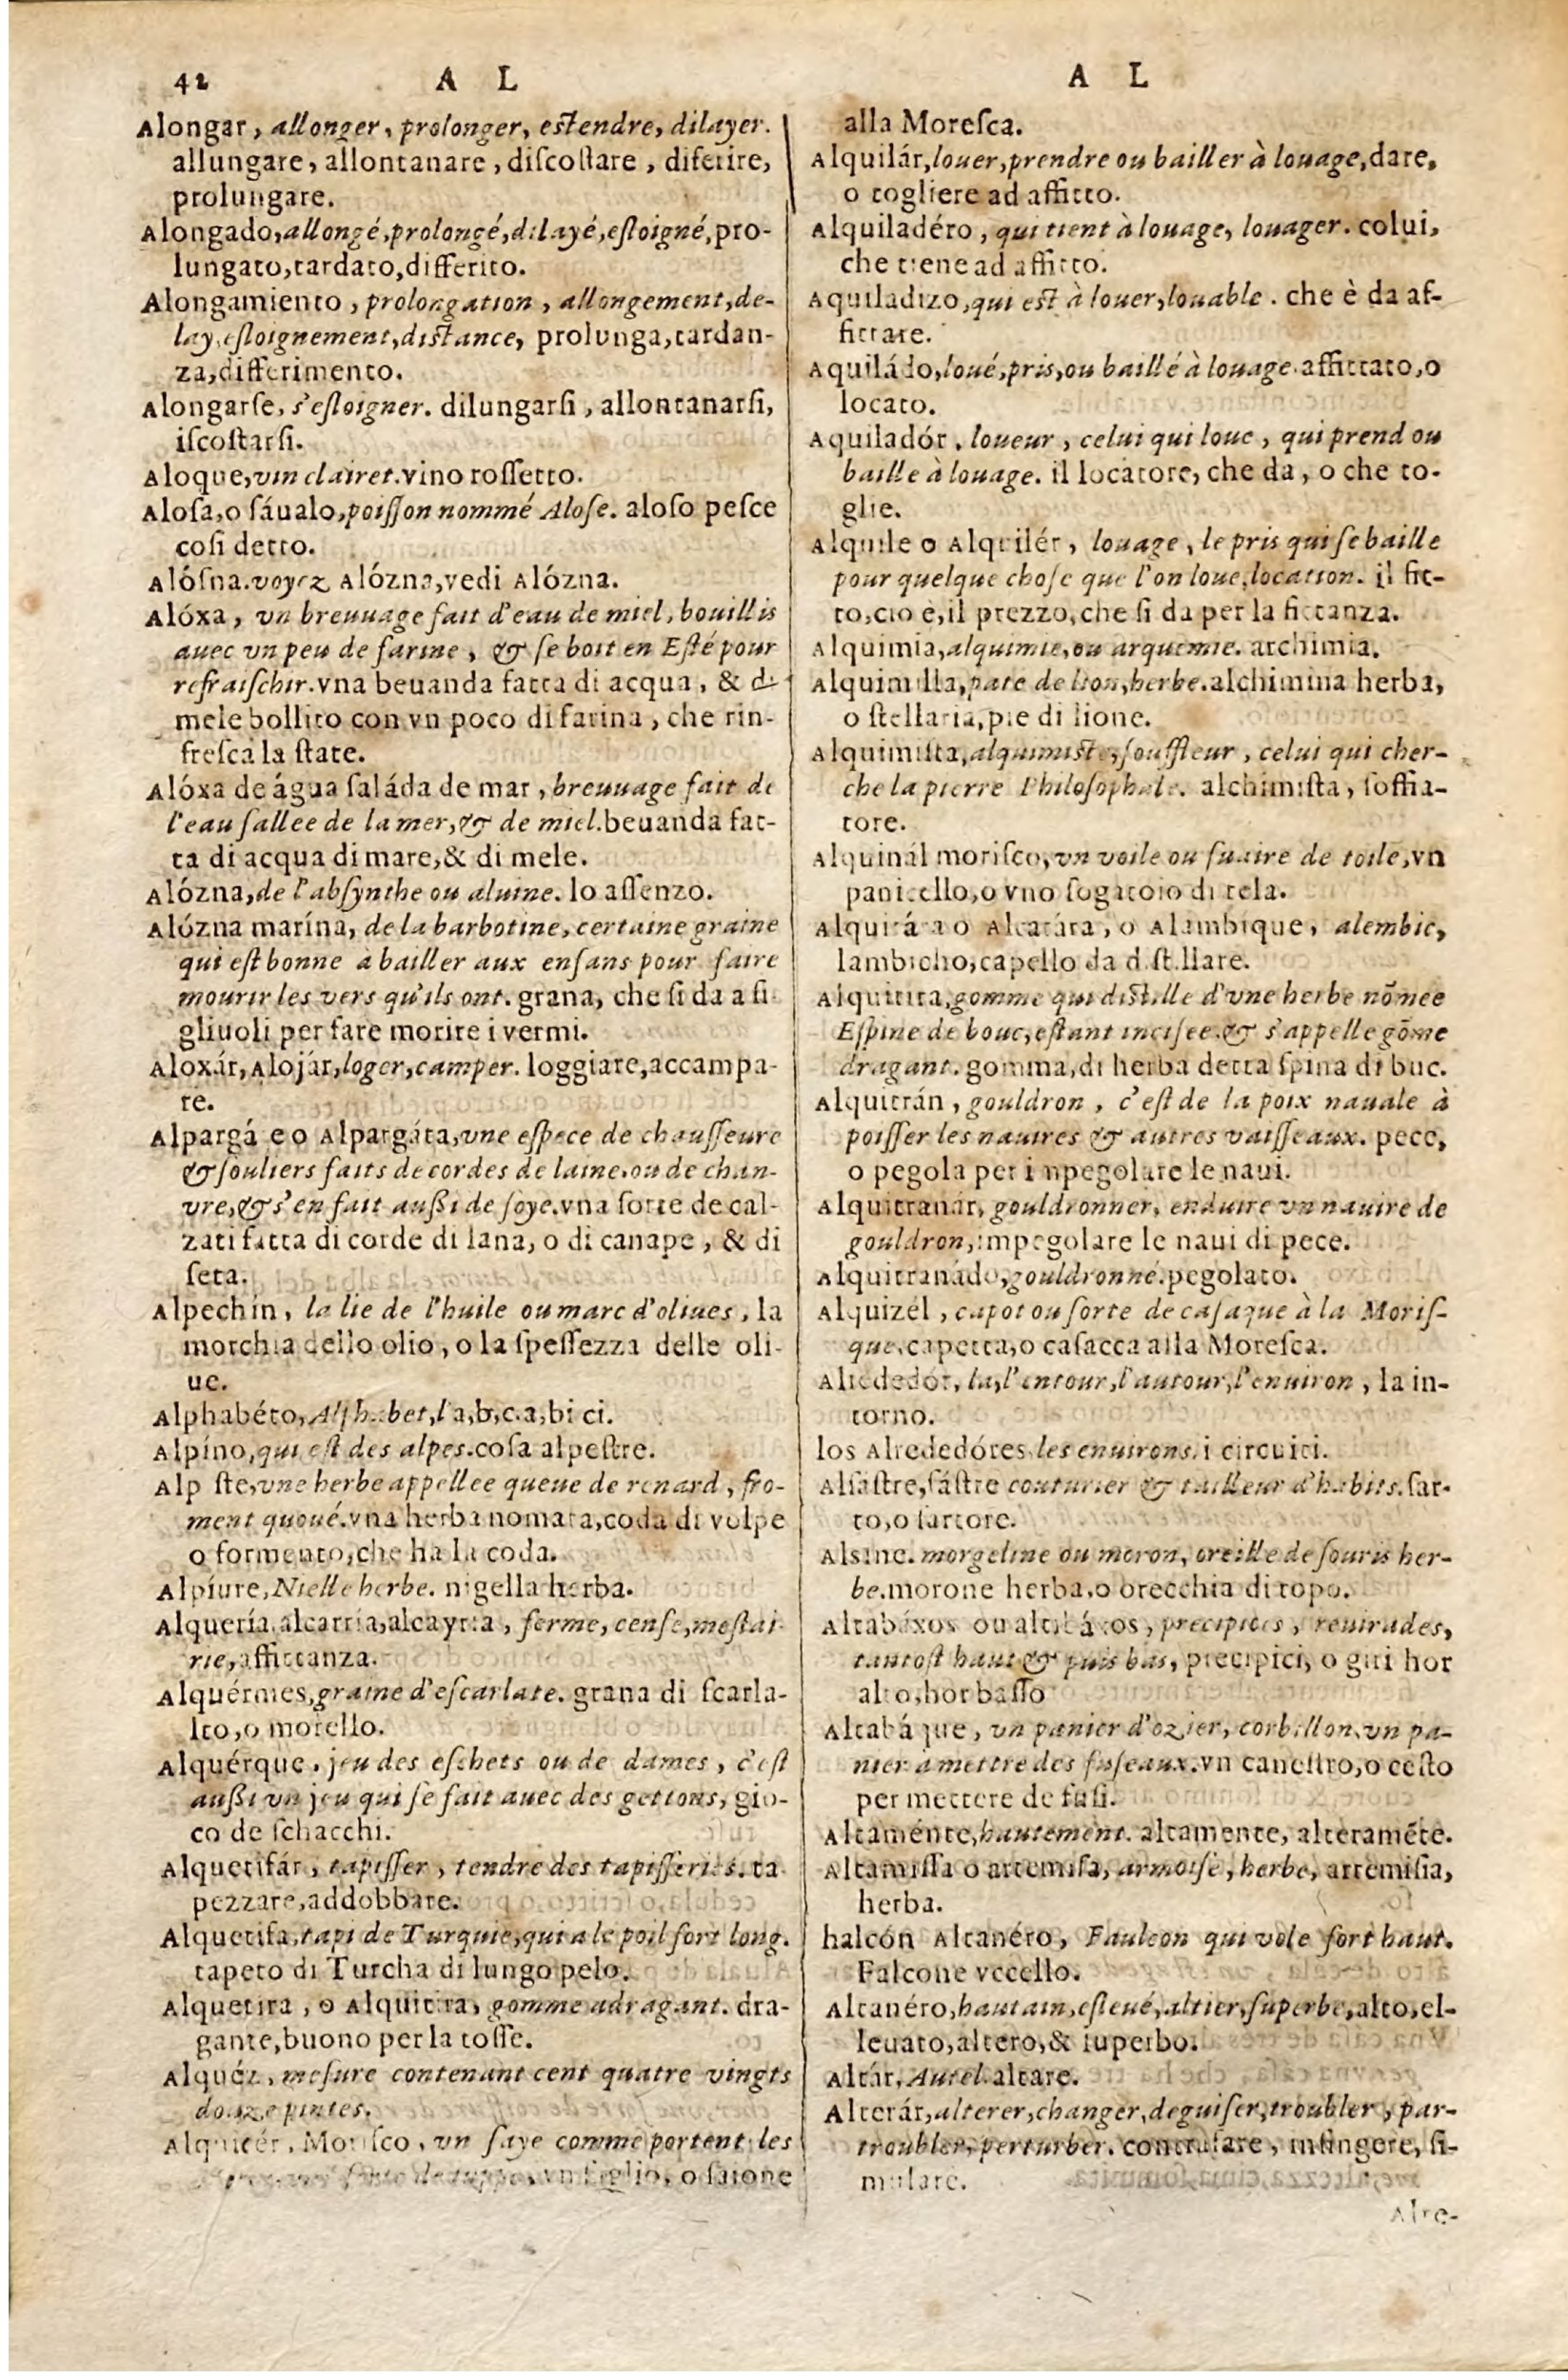 42 A L
Alongar, allonger, prolonger, estendre, dilayer.
allungare, allontanare, discostare, diferire,
prolungare.
Alongado, allongé, prolongé, dilayé, esloigné, pro-
lungato, tardato, differito.
Alongamiento, prolongation, allongement, de-
lay, esloignement, distance, prolunga, tardan-
za, differimento.
Alongarse, s'esloigner. dilungarsi, allontanarsi,
iscostarsi.
Aloque, vin clairet. vino rossetto.
Alosa, o sáualo, poisson nommé Alose. aloso pesce
cosi detto.
Alósna. voyez Alózna, vedi Alózna.
Alóxa, vn breuuage fait d'eau de miel, bouillis
auec vn peu de farine, & se boit en Esté pour
refraischir. vna beuanda fatta di acqua, & di
mele bollito con vn poco di farina, che rin-
fresca la state.
Alóxa de água saláda de mar, breuuage fait de
l'eau sallee de la mer, & de miel. beuanda fat-
ta di acqua di mare, & di mele.
Alózna, de l'absynthe ou aluine. lo assenzo.
Alózna marína, de la barbotine, certaine graine
qui est bonne à bailler aux enfans pour faire
mourir les vers qu'ils ont. grana, che si da a fi
gliuoli per fare morire i vermi.
Aloxár, Alojár, loger, camper. loggiare, accampa-
re.
Alpargáte o Alpargáta, vne espece de chausseure
& souliers faits de cordes de laine, ou de chan-
vre, & s'en fait aussi de soye. vna sorte de cal-
zati fatta di corde di lana, o di canape, & di
seta.
Alpechín, la lie de l'huile ou marc d'oliues, la
morchia dello olio, o la spessezza delle oli-
ue.
Alphabéto, Alphabet, l'a, b, c. a, bi ci.
Alpíno, qui est des alpes. cosa alpestre.
Alp ste, vne herbe appellee queue de renard, fro-
ment quoué. vna herba nomata, coda di volpe
o formento, che ha la coda.
Alpíure, Nielle herbe. nigella herba.
Alquería, alcarría, alcayría, ferme, cense, mestai-
rie, affittanza.
Alquérmes, graine d'escarlate. grana di scarla-
lto, o morello.
Alquérque, jeu des eschets ou de dames, c'est
aussi vn jeu qui se fait auec des gettons, gio-
co de schacchi.
Alquetifár, tapisser, tendre des tapisseries. ta
pezzare, addobbare.
Alquetifa, tapi de Turquie, qui a le poil fort long.
tapeto di Turcha di lungo pelo.
Alquetira, o Alquitira, gomme adragant. dra-
gante, buono per la tosse.
Alquéz, mesure contenant cent quatre vingts
douze pintes.
Alquicér, Morisco, vn saye comme portent les
o saione
A L
alla Moresca.
Alquilár, louer, prendre ou bailler à louage, dare,
o togliere ad affitto.
Alquiladéro, qui tient à louage, louager. colui,
che tiene ad affitto.
Aquiladizo, qui est à louer, louable. che è da af-
fittare.
Aquiládo, loué, pris, ou baillé à louage. affittato, o
locato.
Aquiladór, loueur, celui qui loue, qui prend ou
baille à louage. il locatore, che da, o che to-
glie.
Alquile o Alquilér, louage, le pris qui se baille
pour quelque chose que l'on loue, location. il fit-
to, cio è, il prezzo, che si da per la fittanza.
Alquimia, alquimie, ou arquemie. archimia.
Alquimilla, pate de lion, herbe. alchimina herba,
o stellaria, pie di lione.
Alquimista, alquimiste, souffleur, celui qui cher-
che la pierre Philosophale. alchimista, soffia-
tore.
Alquinál morisco, vn voile ou suaire de toile, vn
panicello, o vno sogatoio di tela.
Alquitára o Alcatára, o Alambique, alembic,
lambicho, capello da distillare.
Alquitira, gomme qui distille d'vne herbe nõmee
Espine de bouc, estant incisee. & s'appelle gõme
dragant. gomma, di herba detta spina di buc.
Alquitrán, gouldron, c'est de la poix nauale à
poisser les nauires & autres vaisseaux. pece,
o pegola per impegolare le naui.
Alquitranár, gouldronner, enduire vn nauire de
gouldron, impegolare le naui di pece.
Alquitranádo, gouldronné. pegolato.
Alquizél, capot ou sorte de casaque à la Moris-
que. capetta, o casacca alla Moresca.
Alrededór, la, l'entour, l'autour, l'enuiron, la in-
torno.
los Alrededóres les enuirons. i circuiti.
Alsástre, sástre couturier & tailleur d'habits. sar-
to, o sartore.
Alsine. morgeline ou moron, oreille de souris her-
be. morone herba, o orecchia di topo.
Altabáxos ou altibáxos, precipices, reuirades,
tantost haut & puis bas, precipici, o giri hor
alto, hor basso
Altabáque, vn panier d'ozier, corbillon, vn pa-
nier à mettre des fuseaux. vn canestro, o cesto
per mettere de fusi.
Altaménte, hautement. altamente, alteramẽte.
Altamissa o artemisa, armoise, herbe, artemisia,
herba.
halcón Altanéro, Faulcon qui vole fort haut.
Falcone vccello.
Altanéro, hautain, esleué, altier, superbe, alto, el-
leuato, altero, & superbo.
Altár, Autel. altare.
Alterár, alterer, changer, deguiser, troubler, par-
troubler, perturber. contrafare, infingere, si-
mulare.
Alte-